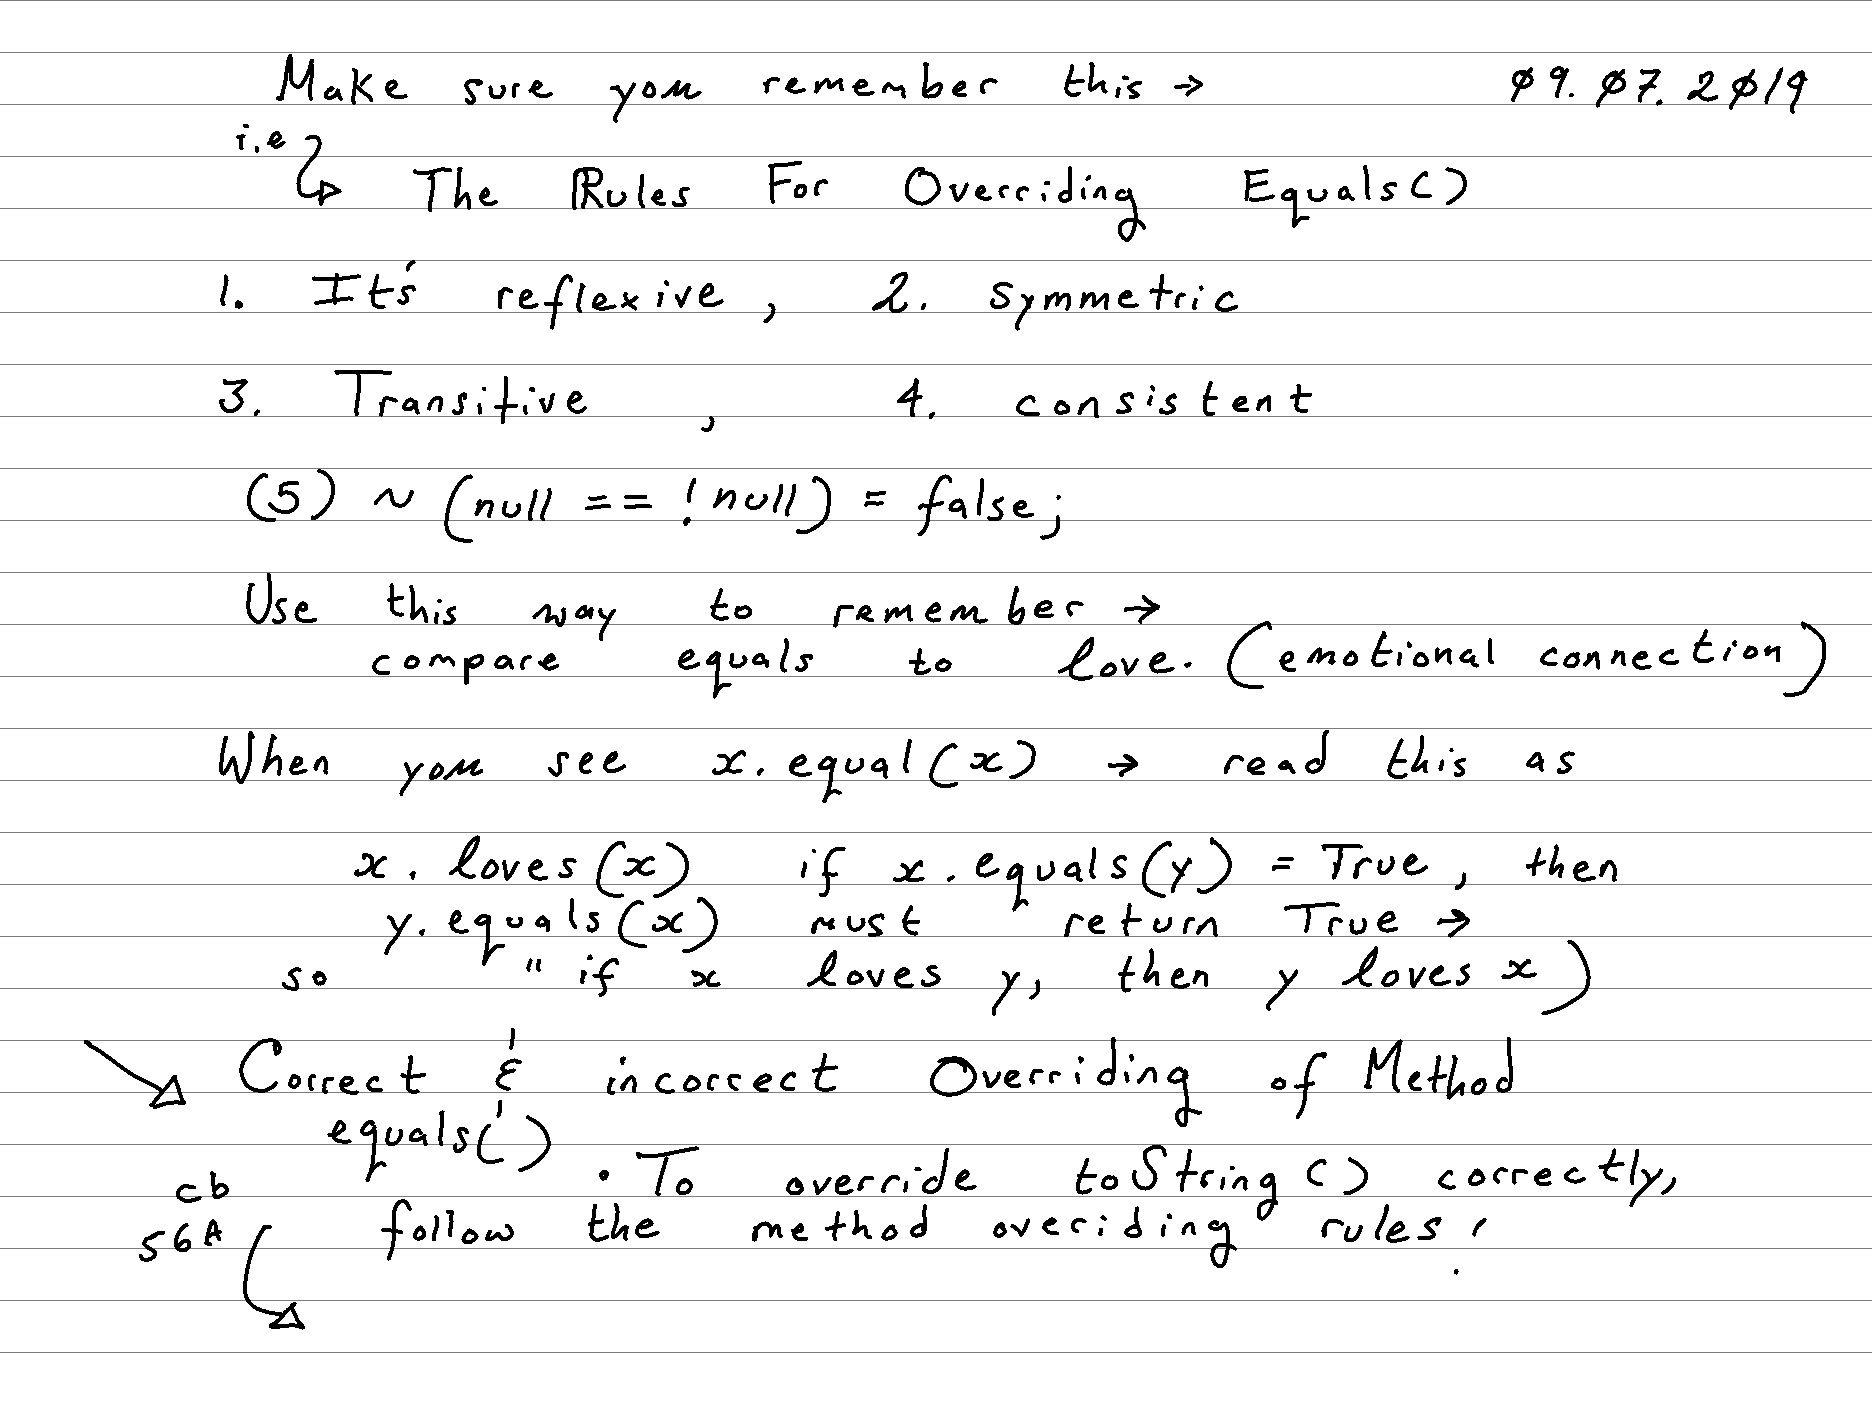 Make sure you remember this → 09.07.2019
i.e
The Rules For Overriding Equals()
1. It's reflexive, 2. symmetric
3. Transitive, 4. consistent
(5) ~ (null == !null) = false;
Use this way to remember →
compare equals to love. (emotional connection)
When you see x.equal(x) → read this as
x.loves(x) if x.equals(y) = True, then
y.equals(x) must return True →
so "if x loves y, then y loves x)
Correct & incorrect Overriding of Method
equals()
• To override toString() correctly,
cb
56A
follow the method overiding rules!